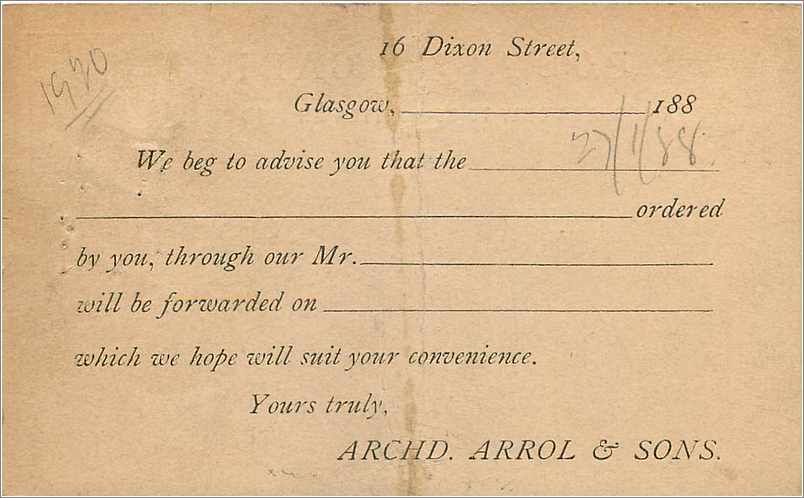 16 Dixon Street,
1930
Glasgow, 188
27/1/88.
We beg to advise you that the
ordered
by you, through our Mr.
will be forwarded on
which we hope will suit your convenience.
Yours truly,
ARCHD. ARROL & SONS.